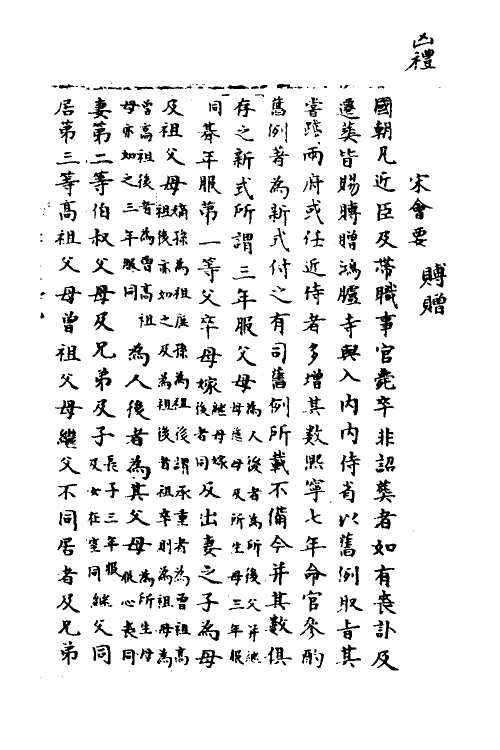 凶禮
宋會要
賻贈
國朝凡近臣及帶職事官薨卒非詔葬者如有喪訃及
遷葬皆賜賻贈鴻臚寺與入內內侍省以舊例取旨其
嘗踐兩府或任近侍者多增其數熙寧七年命官參酌
舊例著為新式付之有司舊例所載不備今并其數俱
存之新式所謂三年服父母為人後者為所後父并繼
母慈母及所生母三年服
同朞年服第一等父卒母嫁繼母嫁
後者同及出妻之子為母
及祖父母嫡孫為祖庶孫為祖後謂承重者為曾祖高
祖後亦如之及為祖後者祖卒則為祖母為
曾高祖後者為曾高祖
母亦如之三年服同為人後者為其父母為所生母
服心喪同
妻第二等伯叔父母及兄弟及子長子三年服
及女在室同繼父同
居第三等高祖父母曾祖父母繼父不同居者及兄弟